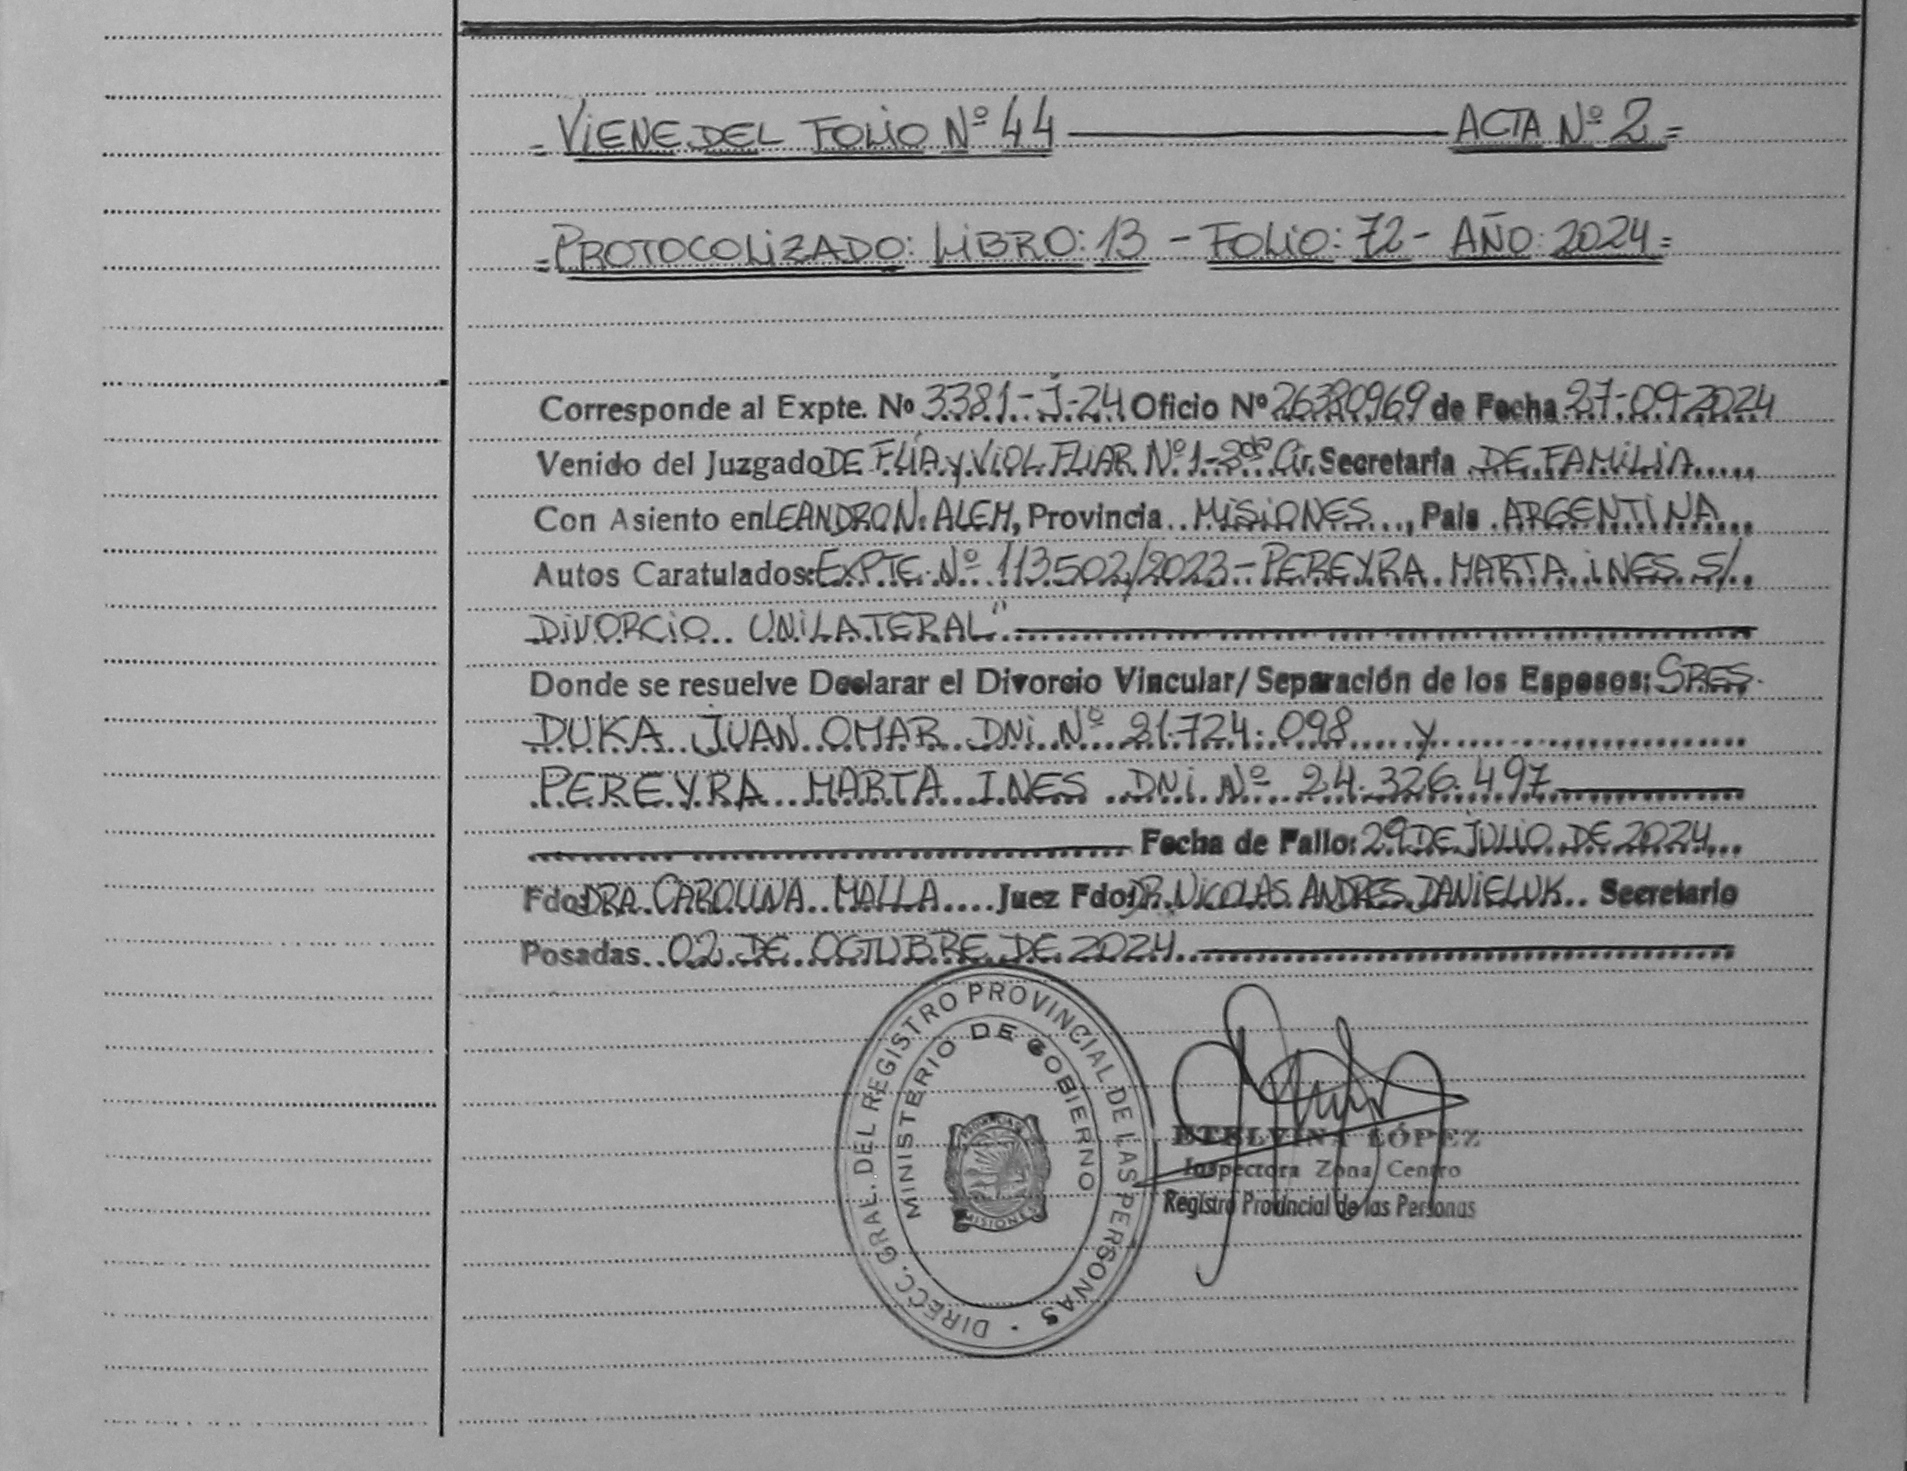 =VIENE DEL FOLIO Nº 44 ACTA Nº 2=
=PROTOCOLIZADO: LIBRO: 13 - FOLIO: 72 - AÑO: 2024=
Corresponde al Expte. Nº 3381-J-24 Oficio Nº 26380969 de Fecha 27-09-2024
Venido del Juzgado DE FLIA y VIOL FLIAR Nº 1- Cir. Secretaría DE FAMILIA
Con Asiento en LEANDRO N. ALEM, Provincia MISIONES, País ARGENTINA
Autos Caratulados: EXPTE Nº 113502/2023 - PEREYRA MARTA INES S/
DIVORCIO UNILATERAL"
Donde se resuelve Declarar el Divorcio Vincular/Separación de los Esposos: SRES.
DUKA JUAN OMAR DNI Nº 21.724.098 y
PEREYRA MARTA INES DNI Nº 24.326.497
Fecha de Fallo: 29 DE JULIO DE 2024
Fdo: DRA. CAROLINA MALLA Juez Fdo: DR. NICOLAS ANDRES DANIELUK Secretario
Posadas 02 DE OCTUBRE DE 2024
DIRECC. GRAL. DEL REGISTRO PROVINCIAL DE LAS PERSONAS
MINISTERIO DE GOBIERNO
MISIONES
ETELVINA LÓPEZ
Inspectora Zona Centro
Registro Provincial de las Personas